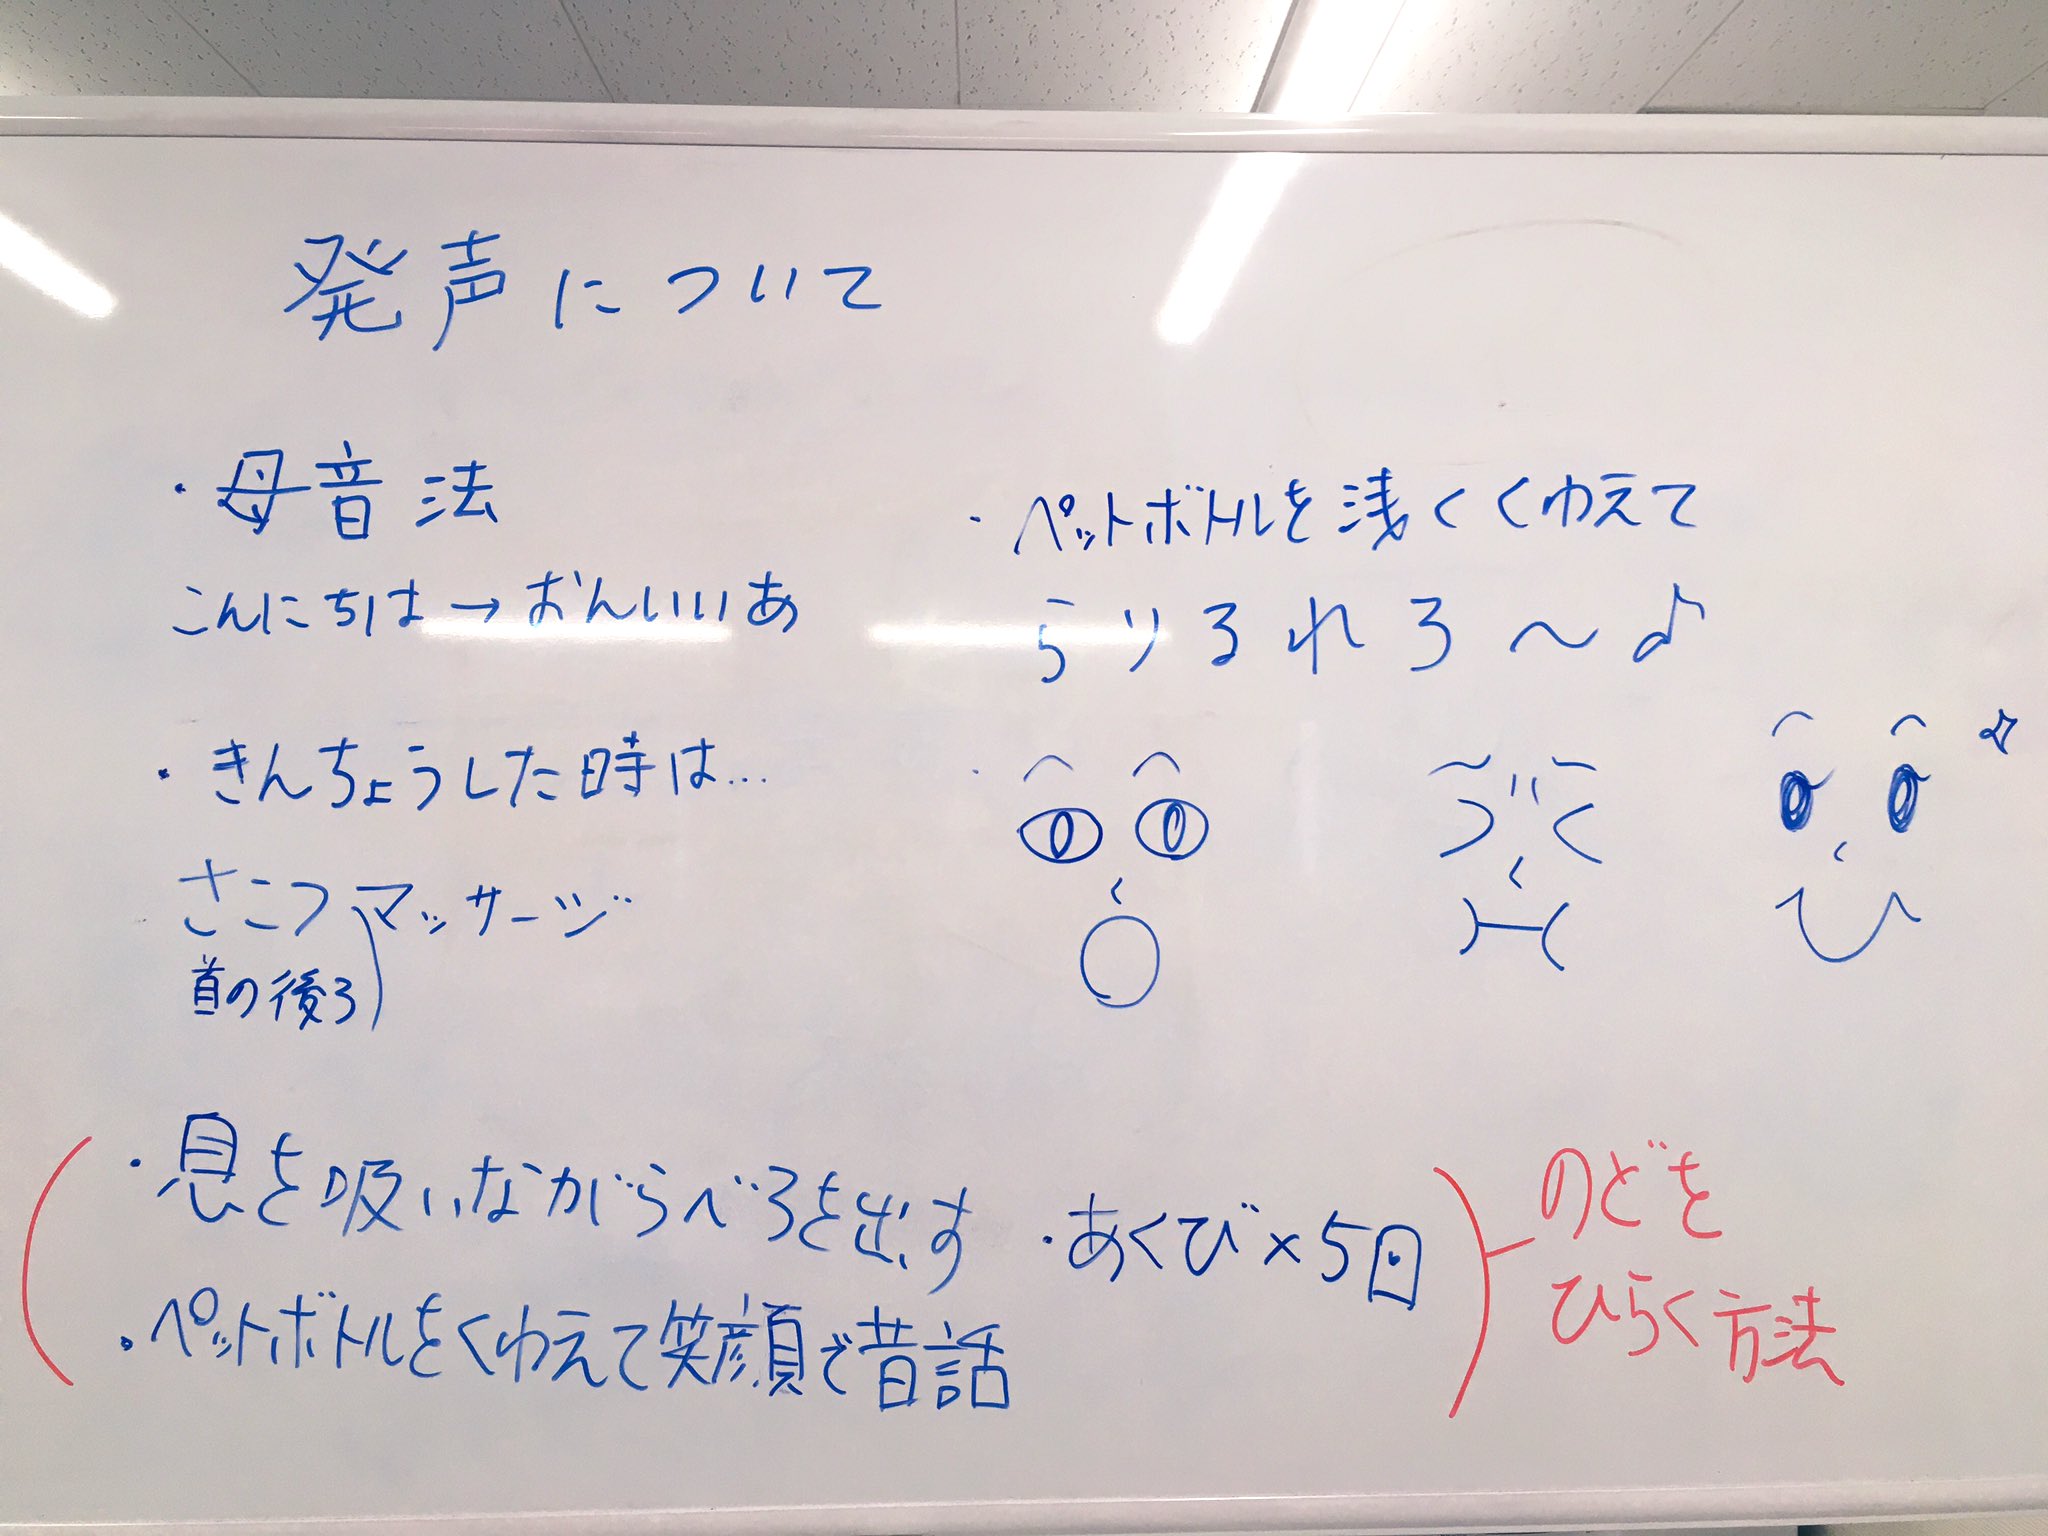 発声について
・母音法
こんにちは→おんいいあ
・きんちょうした時は…
さこつマッサージ
首の後ろ
・ペットボトルを浅くくわえて
らりるれろ～♪
・息を吸いながらべろを出す
・あくび×5回
・ペットボトルをくわえて笑顔で昔話
のどを
ひらく方法